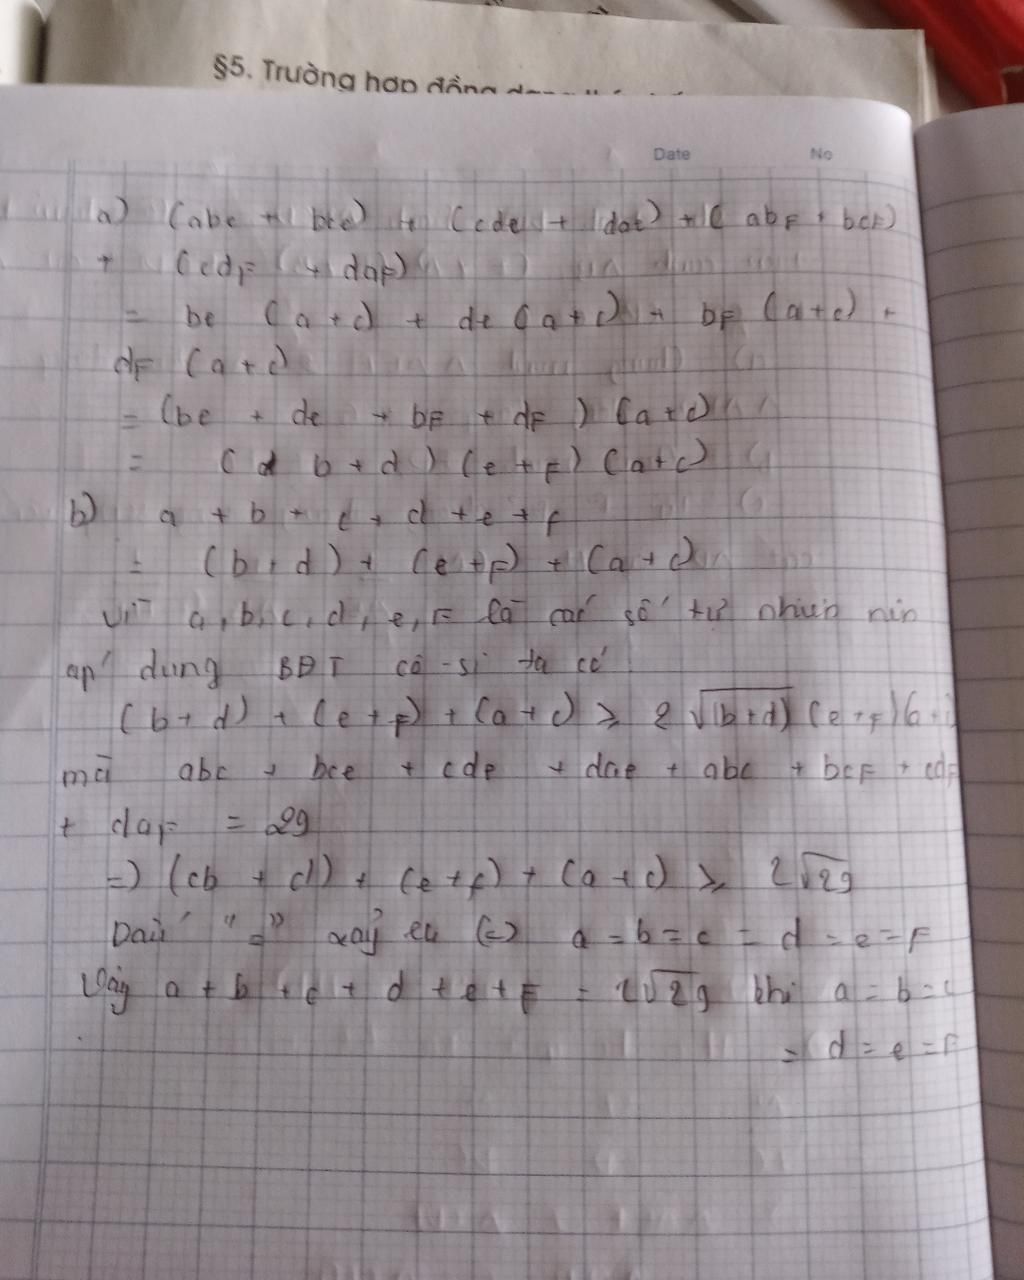 §5. Trường hợp đồng dạng
Date No
a) (abe + bce) + (cde + dae) + ( abF + bcF)
+ (cdF + daF)
= be (a+c) + de (a+c) + bF (a+c) +
dF (a+c)
= (be + de + bF + dF ) (a+c)
= ( b+d ) (e+F) (a+c)
b) a + b + c + d + e + f
= (b+d) + (e+F) + (a+c)
Vì a, b, c, d, e, F là các số tự nhiên nên
áp dụng BĐT cô-si ta có
(b+d) + (e+F) + (a+c) ≥ 2 √(b+d) (e+F)(
mà abc + bce + cde + dae + abc + bcF + cdF
+ daF = 29
=) (cb + d) + (e+f) + (a+c) ≥ 2√29
Dấu "=" xảy (=) a = b = c = d = e = F
Vậy a + b + c + d + e + F = 2√29 khi a = b = c
= d = e = F